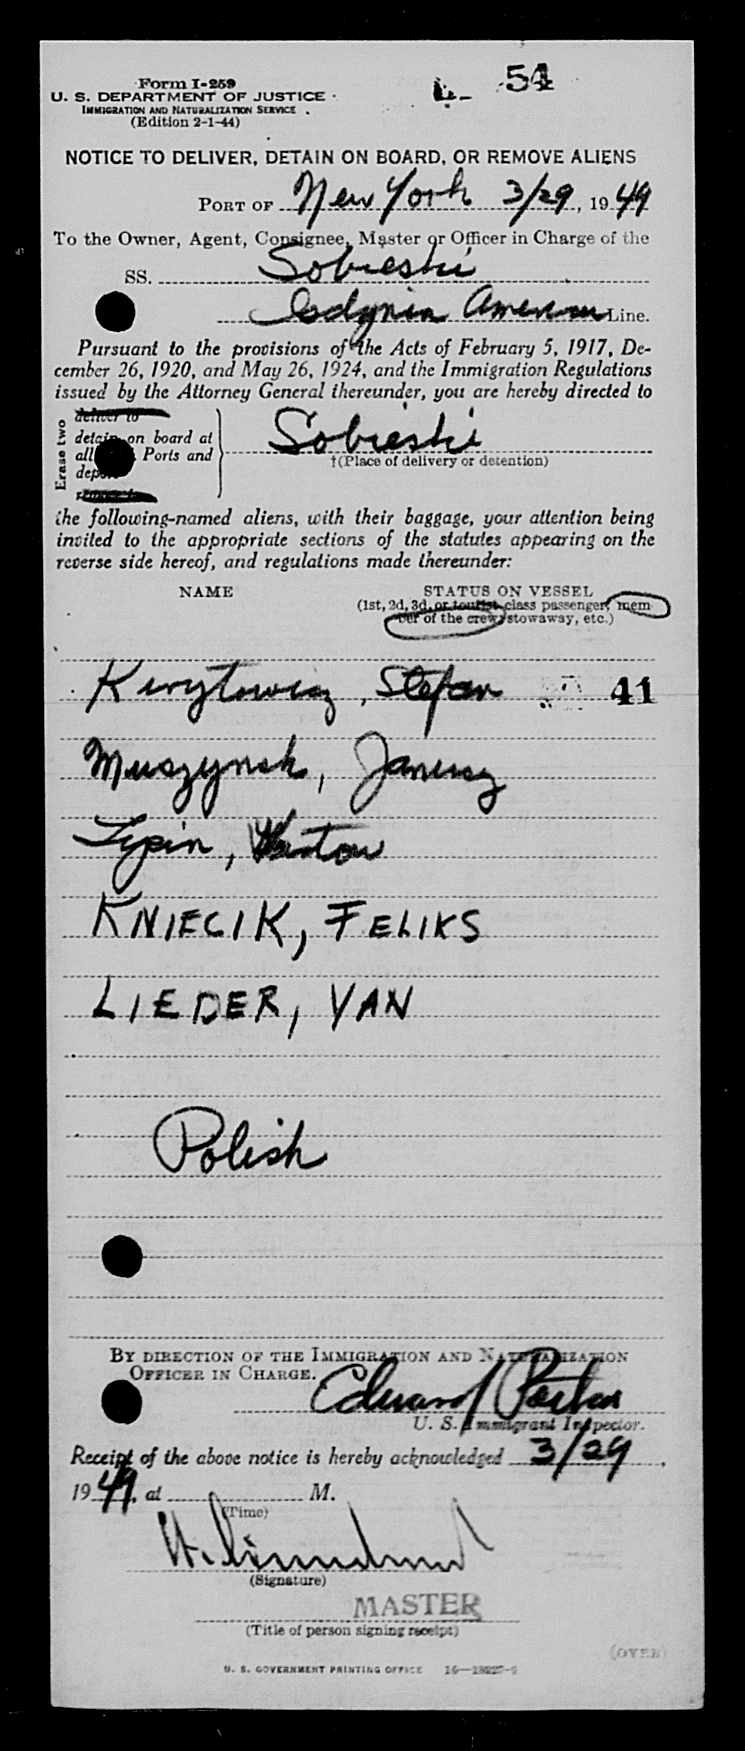 Form I-259
54
U. S. DEPARTMENT OF JUSTICE
IMMIGRATION AND NATURALIZATION SERVICE
(Edition 2-1-44)
NOTICE TO DELIVER, DETAIN ON BOARD, OR REMOVE ALIENS
PORT OF New York 3/29, 1949
To the Owner, Agent, Consignee, Master or Officer in Charge of the
SS. Sobieski
Gdynia American Line.
Pursuant to the provisions of the Acts of February 5, 1917, De-
cember 26, 1920, and May 26, 1924, and the Immigration Regulations
issued by the Attorney General thereunder, you are hereby directed to
Erase two
deliver to
detain on board at
all Ports and
Sobieski
†(Place of delivery or detention)
the following-named aliens, with their baggage, your attention being
invited to the appropriate sections of the statutes appearing on the
reverse side hereof, and regulations made thereunder:
NAME STATUS ON VESSEL
(1st, 2d, 3d, or tourist class passenger, mem-
ber of the crew, stowaway, etc.)
Stefan 41
Muszynsk, Janusz
KNIECIK, FELIKS
LIEDER, YAN
Polish
BY DIRECTION OF THE IMMIGRATION AND NATURALIZATION
OFFICER IN CHARGE.
Edward
U. S. Immigrant Inspector.
Receipt of the above notice is hereby acknowledged 3/29,
1949, at M.
(Time)
(Signature)
MASTER
(Title of person signing receipt)
(OVER)
U. S. GOVERNMENT PRINTING OFFICE